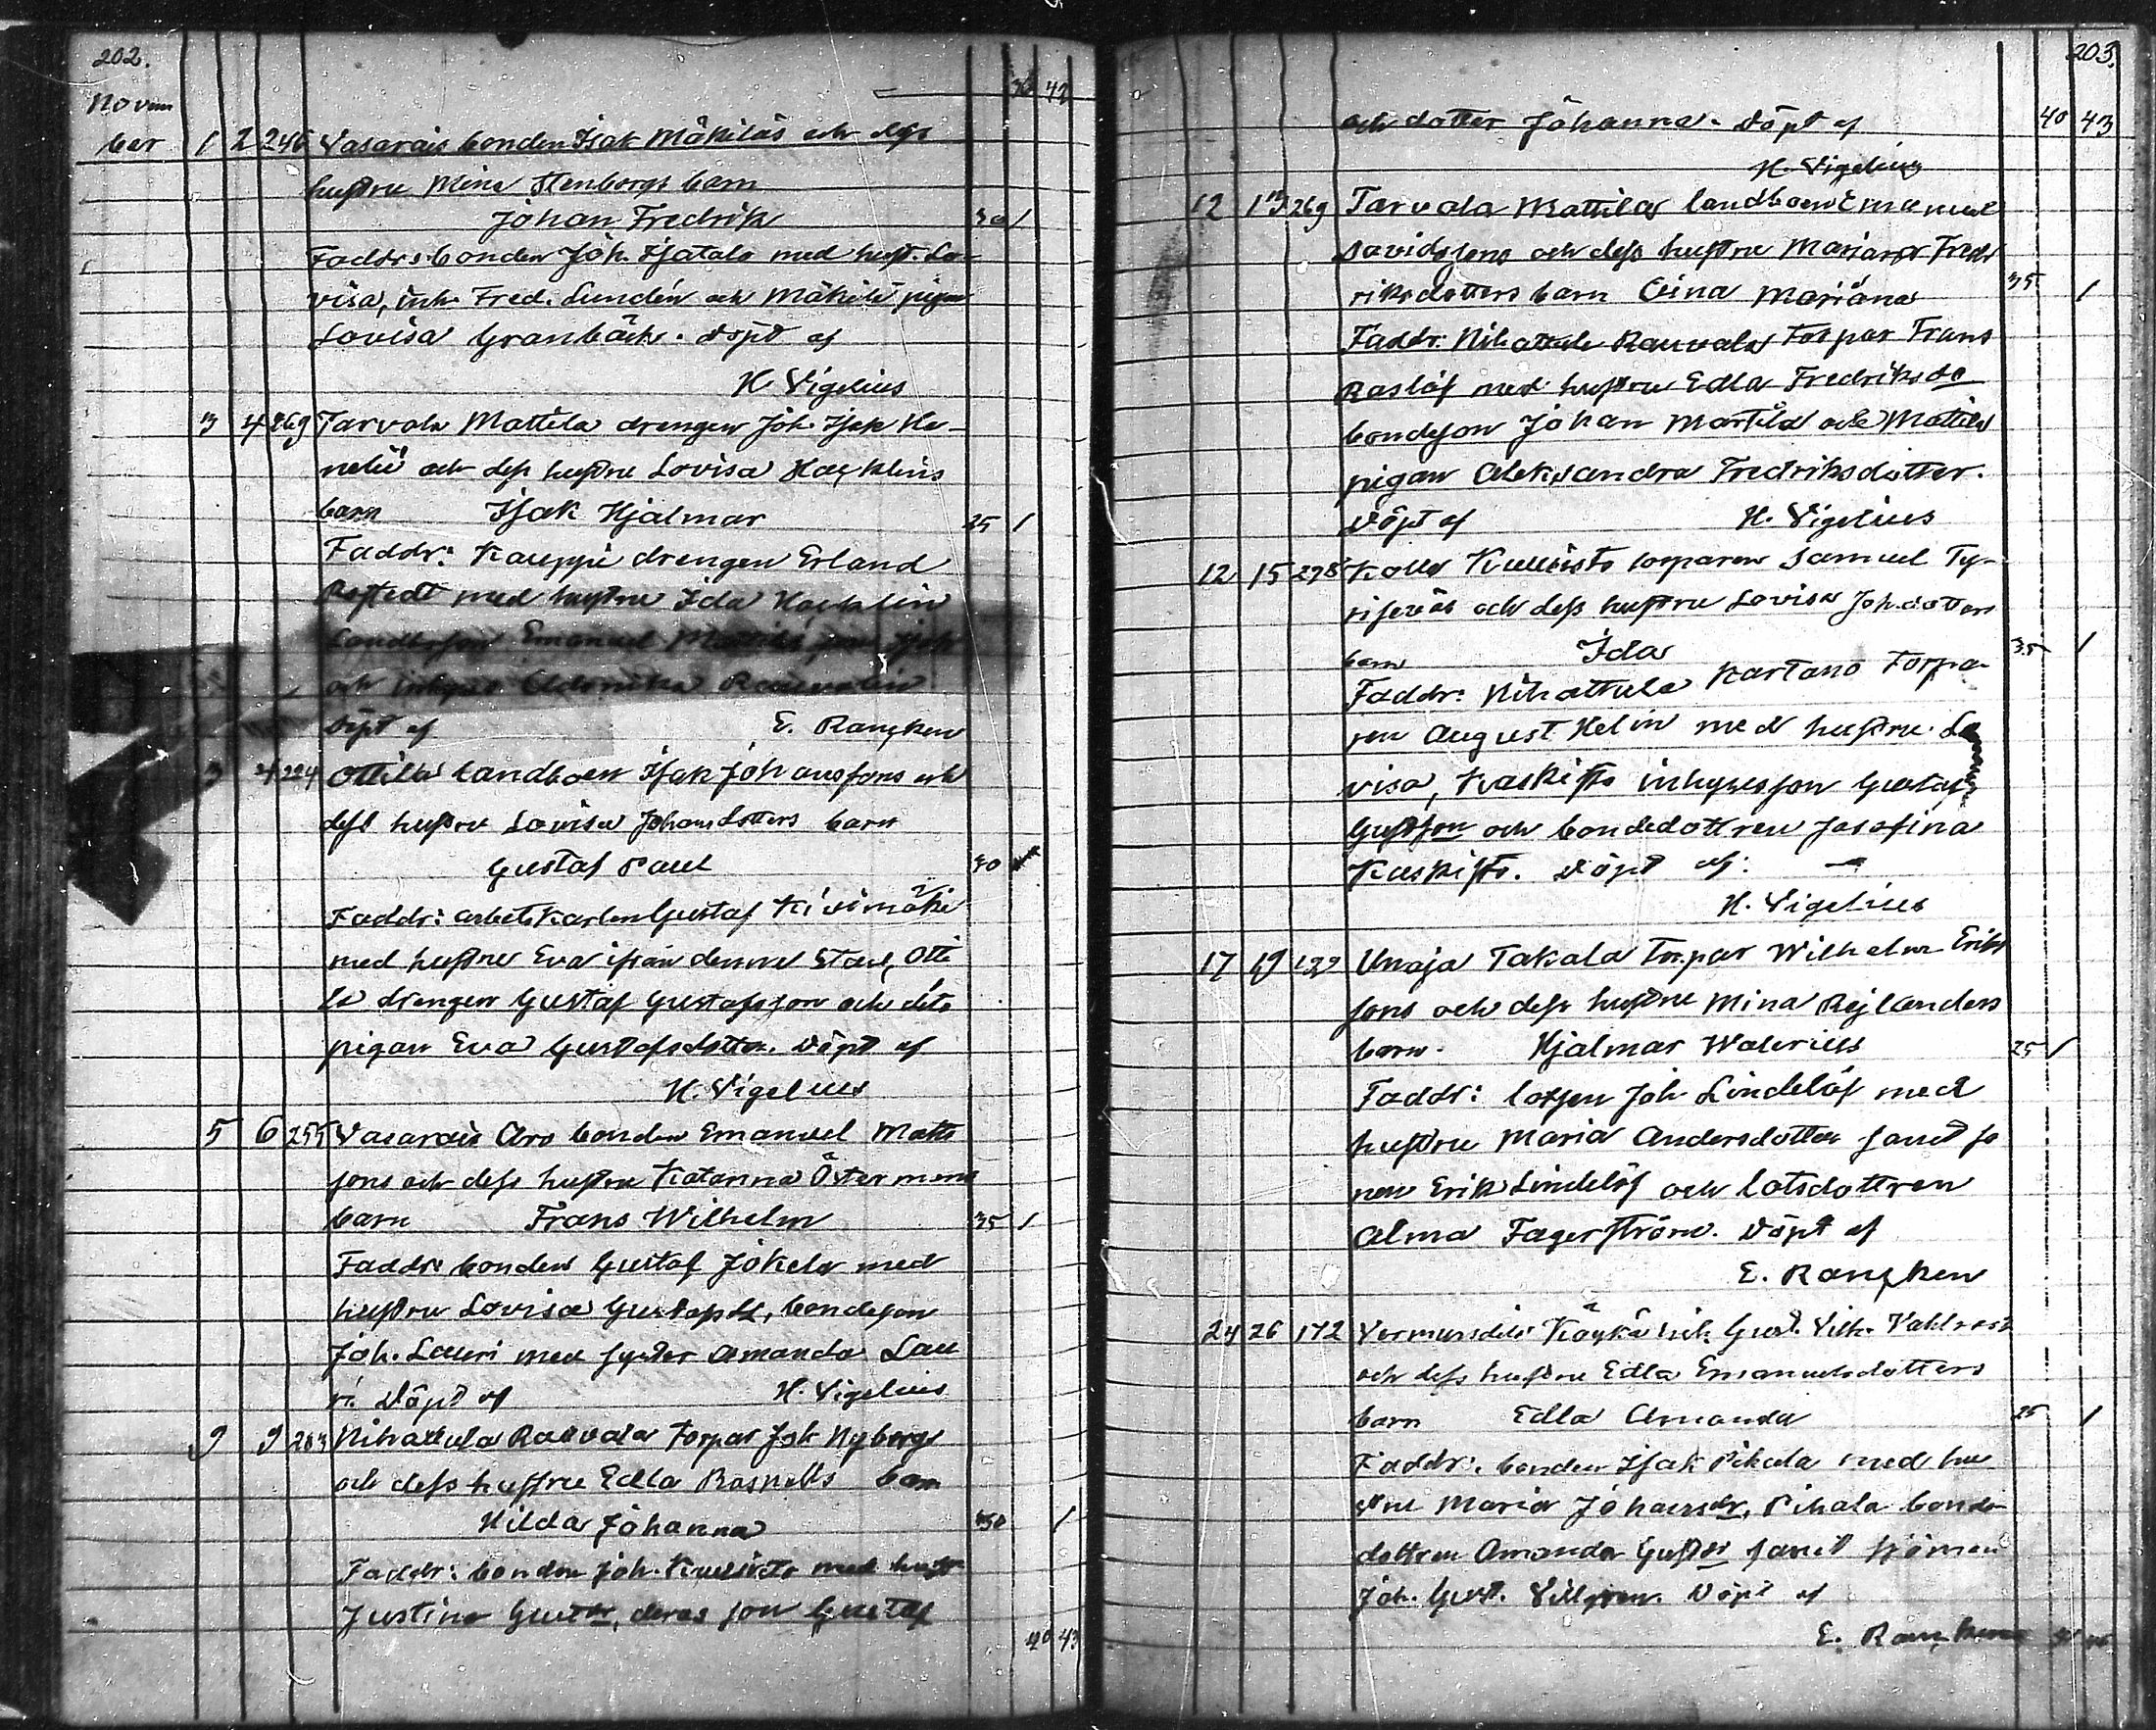 202.
Novem
ber 1 2 246 Vasarais bonden Isak Mäkiläs och dess
hustru Mina Stenborgs barn
Johan Fredrik 30 1
Faddr: bonden Joh. Isatalo med hust. Lo-
visa, inh. Fred. Lundén och Mäkilä pigan
Lovisa Granbäck. Döpt af
H. Vigelius
3 4 269 Tarvola Mattila drengen Joh. Isak He-
neliī och dess hustru Lovisa Hacklins
barn Isak Hjalmar 25 1
Faddr: Kauppi drengen Erland
med hustru Ida Hacklin
Emanuel Mattila
och inhyses
Döpt af E. Rancken
3 4 224 Ottila landboen Isak Johanssons och
dess hustru Lovisa Johansdotters barn
Gustaf Paul 30
Faddr: arbetskarlen Gustaf Kivimäki
med hustru Eva ifrån denne Stad, Otti
la drengen Gustaf Gustafsson och dito
pigan Eva Gustafsdotter. Döpt af
H. Vigelius
5 6 255 Vasarais Aro bonden Emanuel Mats
sons och dess hustru Katarina Östermans
barn Frans Wilhelm 35 1
Faddr: bonden Gustaf Jokela med
hustru Lovisa Gustafsdt, bondeson
Joh. Lauri med syster Amanda Lau
ri. Döpt af H. Vigelius
9 9 283 Nihattula Rauvola Torpar Joh Nybergs
och dess hustru Edla barn
Hilda Johanna 1
Faddr: bonden Joh. Kuuisto med hust
Justina Gustdr, deras son Gustaf
40 43
203.
och dotter Johanna. Döpt af 40 43
H. Vigelius
12 13 269 Tarvola Mattilas landboen Emanuel
Davidssons och dess hustru Mariana Fred
riksdotters barn Eina Mariana 35 1
Faddr: Nihattula Rauvola Torpar Frans
Roslöf med hustru Edla Fredriksdo
bondeson Johan Marttila och Mattila
pigan Aleksandra Fredriksdotter.
Döpt af H. Vigelius
12 15 278 Kolla Kuuisto torparen Samuel Ty-
och dess hustru Lovisa Joh.dotters
barn Ida 35 1
Faddr: Nihattula Kartano Torpa-
ren August Helin med hustru Lo
visa, Kaskisto inhysesson Gustaf
Gustson och bondedottren Josefina
Kaskisto. Döpt af: —
H. Vigelius
17 19 Unaja Takala Torpar Wilhelm Eriks
sons och dess hustru Mina Rejlanders
barn. Hjalmar Walerius 25 1
Faddr: lotsen Joh Lindelöf med
hustru Maria Andersdotter samt so
nen Erik Lindelöf och lotsdottren
Alma Fagerström. Döpt af
E. Rancken
24 26 172 Vermunsdela Käykä inh. Gust. Vilh. Vahlroos
och dess hustru Edla Emanuelsdotters
barn Edla Amanda 25 1
Faddr: bonden Isak Pihala med hu
stru Maria Johansdr, Pihala bonde
dottren Amanda Gustdr samt sjöman
Joh. Gust. Döpt af
E. Rancken